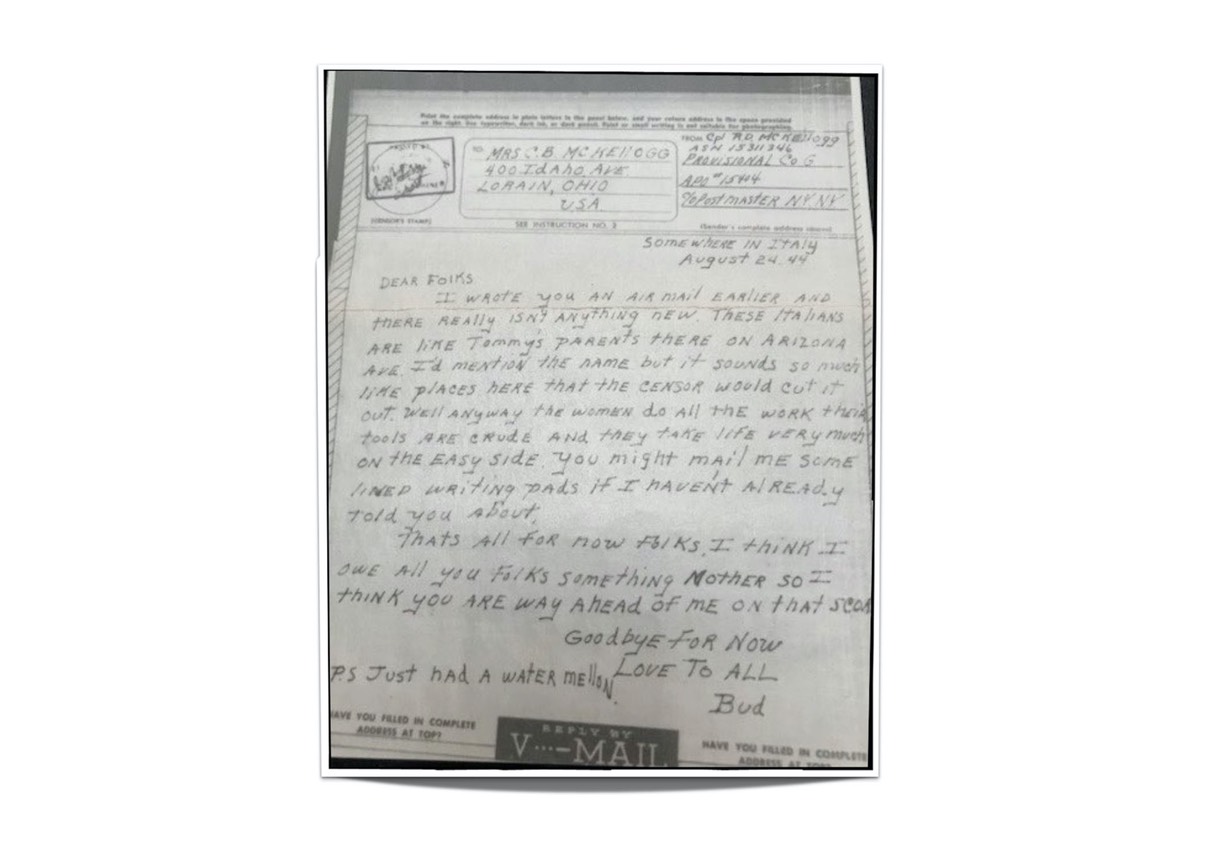 Print the complete address in plain letters in the panel below, and your return address in the space provided
on the right. Use typewriter, dark ink, or dark pencil. Faint or small writing is not suitable for photographing.
TO: MRS C.B. MCKELLOGG
400 IDAHO AVE
LORAIN, OHIO
USA
FROM Cpl R.D. MCKELLOGG
ASN 15311346
PROVISIONAL CO G
APO #15414
C/O POSTMASTER N.Y. N.Y.
(CENSOR'S STAMP)
SEE INSTRUCTION NO. 2
(Sender's complete address above)
SOMEWHERE IN ITALY
August 24. 44
DEAR FOLKS
I WROTE you AN AIR MAIL EARLIER AND
THERE REALLY ISN'T ANYTHING NEW. THESE ITALIANS
ARE LIKE TOMMY'S PARENTS THERE ON ARIZONA
AVE. I'd MENTION THE NAME but it SOUNDS SO much
LIKE PLACES HERE THAT THE CENSOR WOULD CUT IT
OUT. WELL ANYWAY THE WOMEN do ALL THE WORK THEIR
tools ARE CRUDE AND they TAKE LIFE VERY much
ON THE EASY SIDE. YOU might MAIL ME SOME
LINED WRITING PADS if I HAVEN'T ALREADY
TOLD YOU ABOUT.
THATS ALL FOR NOW FOLKS. I THINK I
OWE ALL YOU FOLKS SOMETHING MOTHER SO I
THINK YOU ARE WAY AHEAD OF ME ON THAT SCOR
GoodbyE FOR NOW
LOVE TO ALL
Bud
P.S JUST HAD A WATER MELLON.
HAVE YOU FILLED IN COMPLETE
ADDRESS AT TOP?
REPLY BY
V···—MAIL
HAVE YOU FILLED IN COMPLETE
ADDRESS AT TOP?